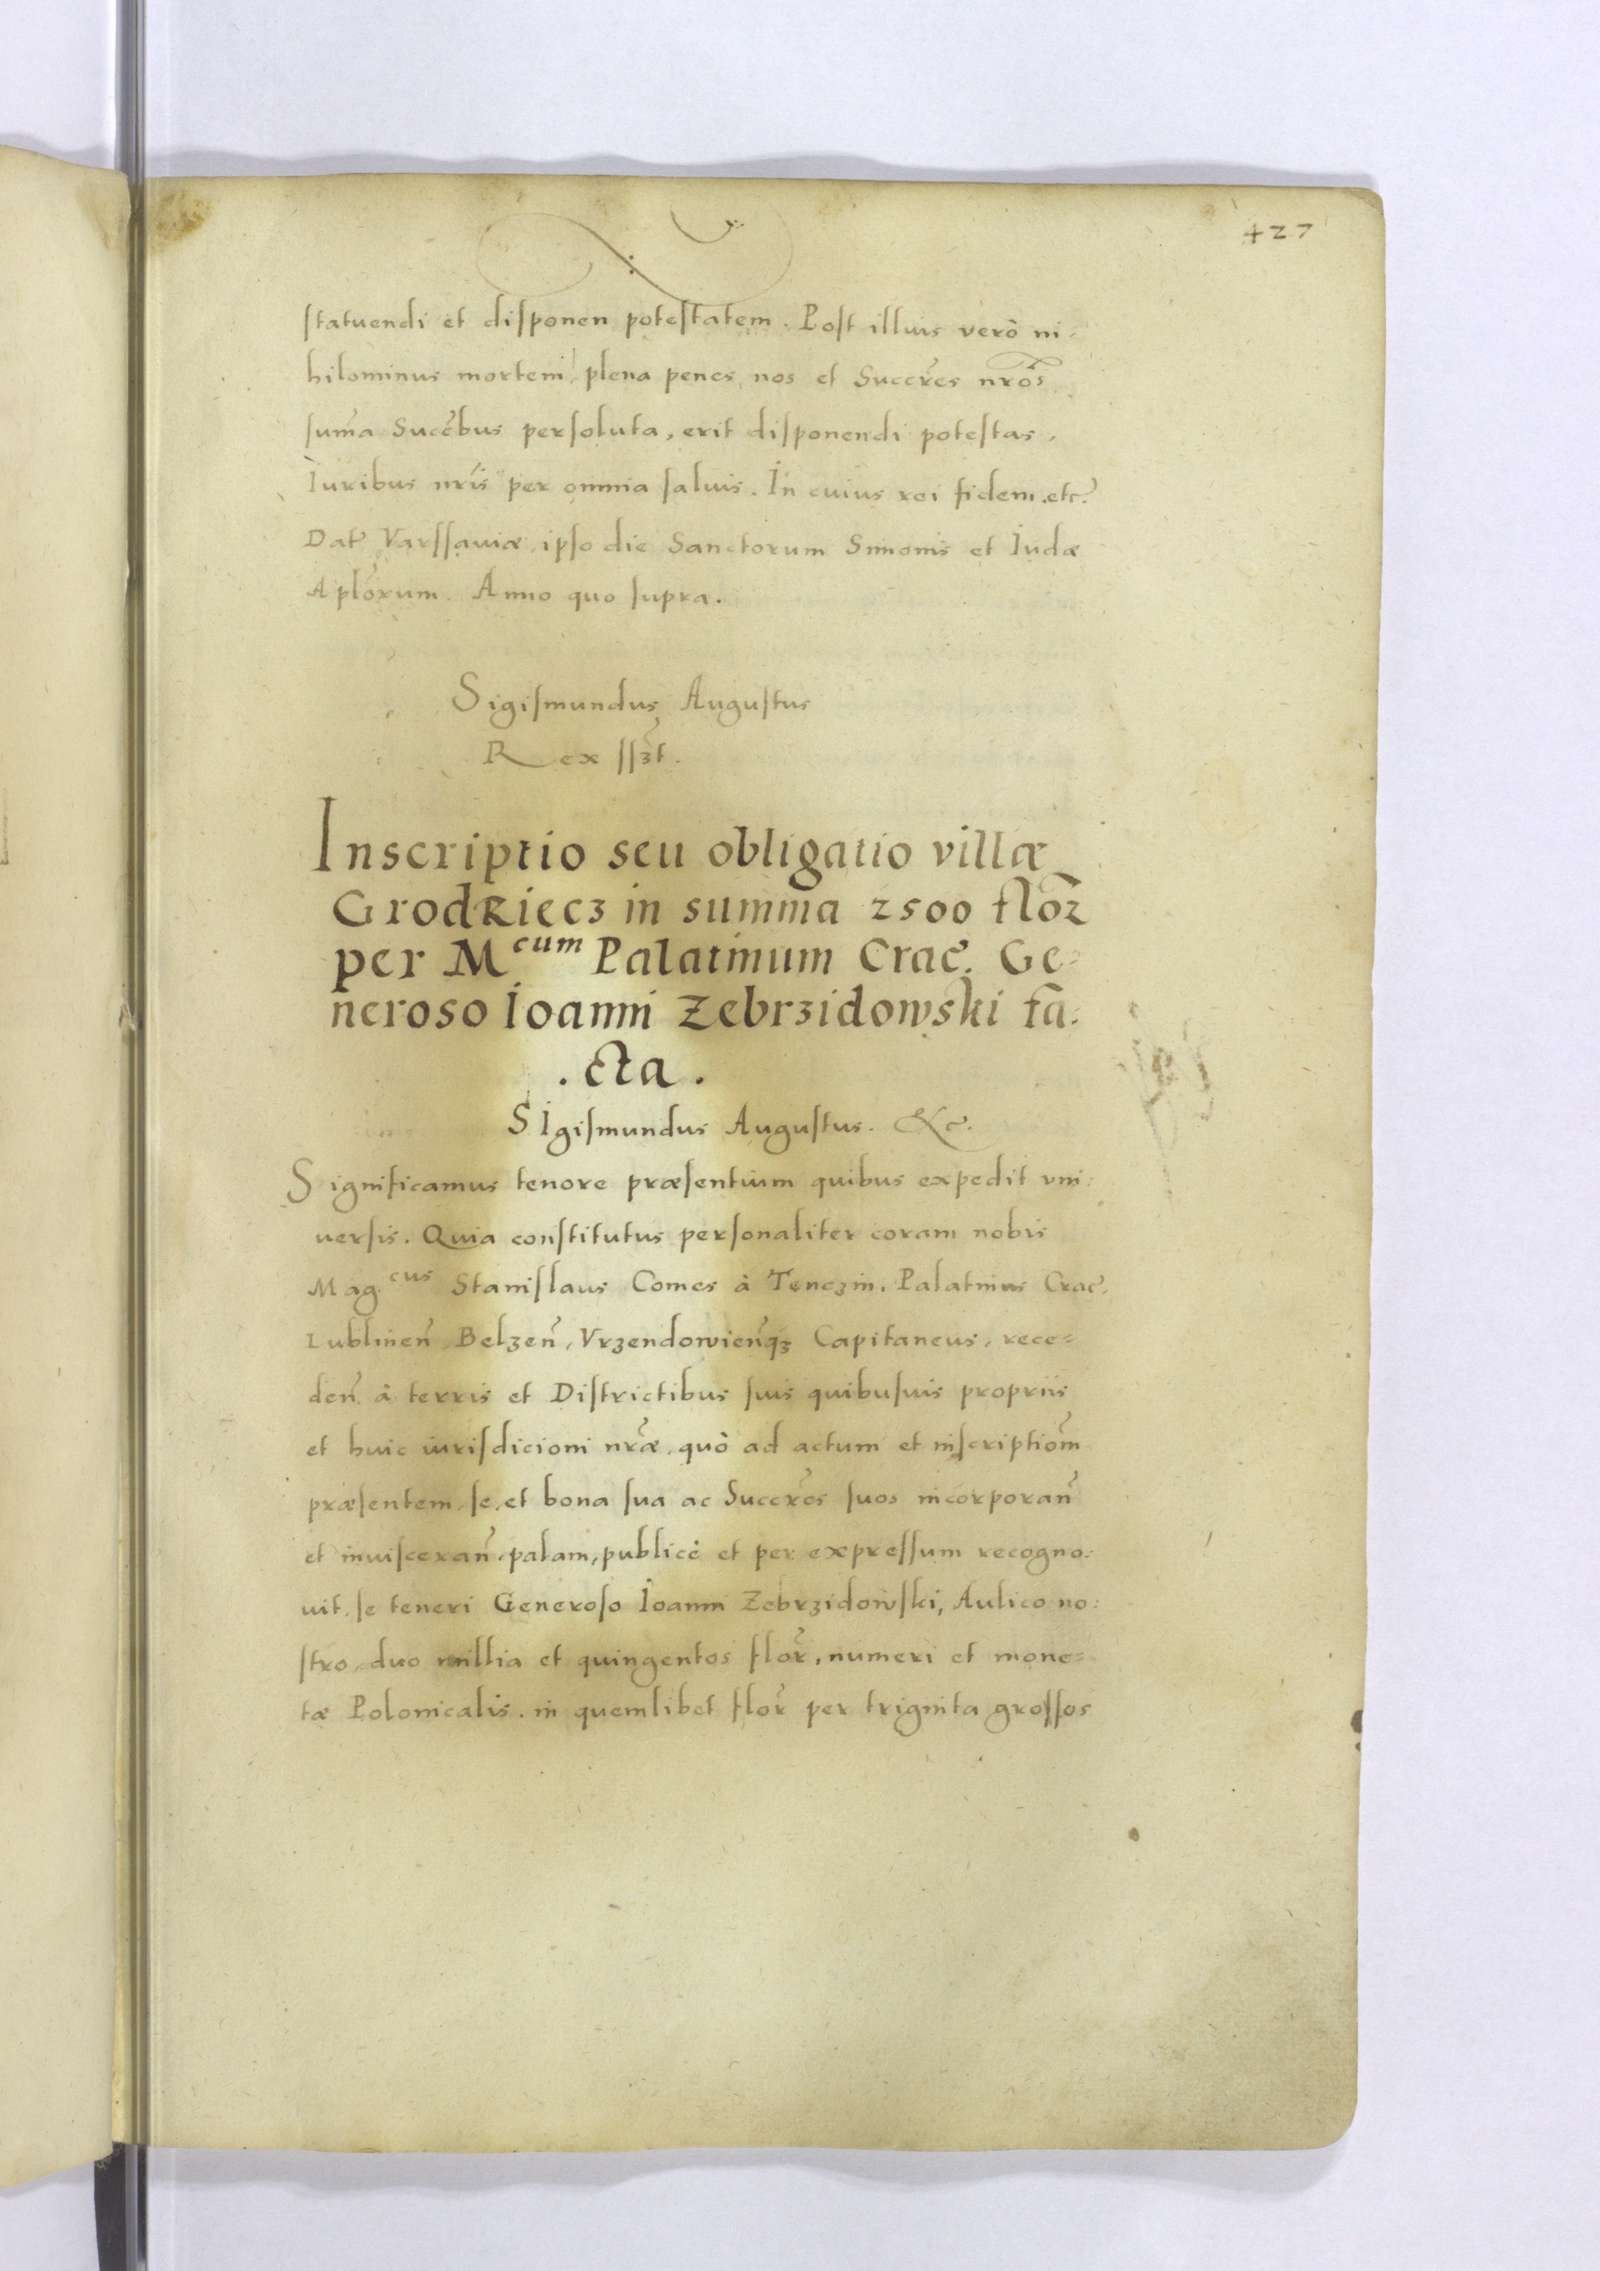 427
statuendi et disponen potestatem. Post illius verò ni-
hilominus mortem, plena penes nos et Succr̃es nrõs
sum̃a Succ̃bus persoluta, erit disponendi potestas,
Iuribus nr̃is per omnia saluis. In cuius rei fidem etc.
Dat̃ Varssauiæ, ipso die Sanctorum Simonis et Iudæ
Aplõrum. Anno quo supra.
Sigismundus Augustus
Rex sszt.
Inscriptio seu obligatio villæ
Grodziecz in summa 2500 flor̃
per M^cum Palatinum Crac̃. Ge-
neroso Ioanni Zebrzidowski fa-
.cta.
SIgismundus Augustus. &c.
Significamus tenore præsentium quibus expedit vni-
uersis. Quia constitutus personaliter coram nobis
Mag^cus Stanislaus Comes à Tenczin, Palatinus Crac̃.
Lublinen̄, Belzen̄, Vrzendowien̄qz Capitaneus, rece-
den̄ à terris et Districtibus suis quibusuis propriis
et huic iurisdicioni nr̃æ, quò ad actum et inscriptiom̄
præsentem, se, et bona sua ac Succr̃es suos incorporan̄
et inuisceran̄, palam, publicè et per expressum recogno-
uit, se teneri Generoso Ioanni Zebrzidowski, Aulico no-
stro, duo millia et quingentos flor̃, numeri et mone-
tæ Polonicalis, in quemlibet flor̃ per triginta grossos